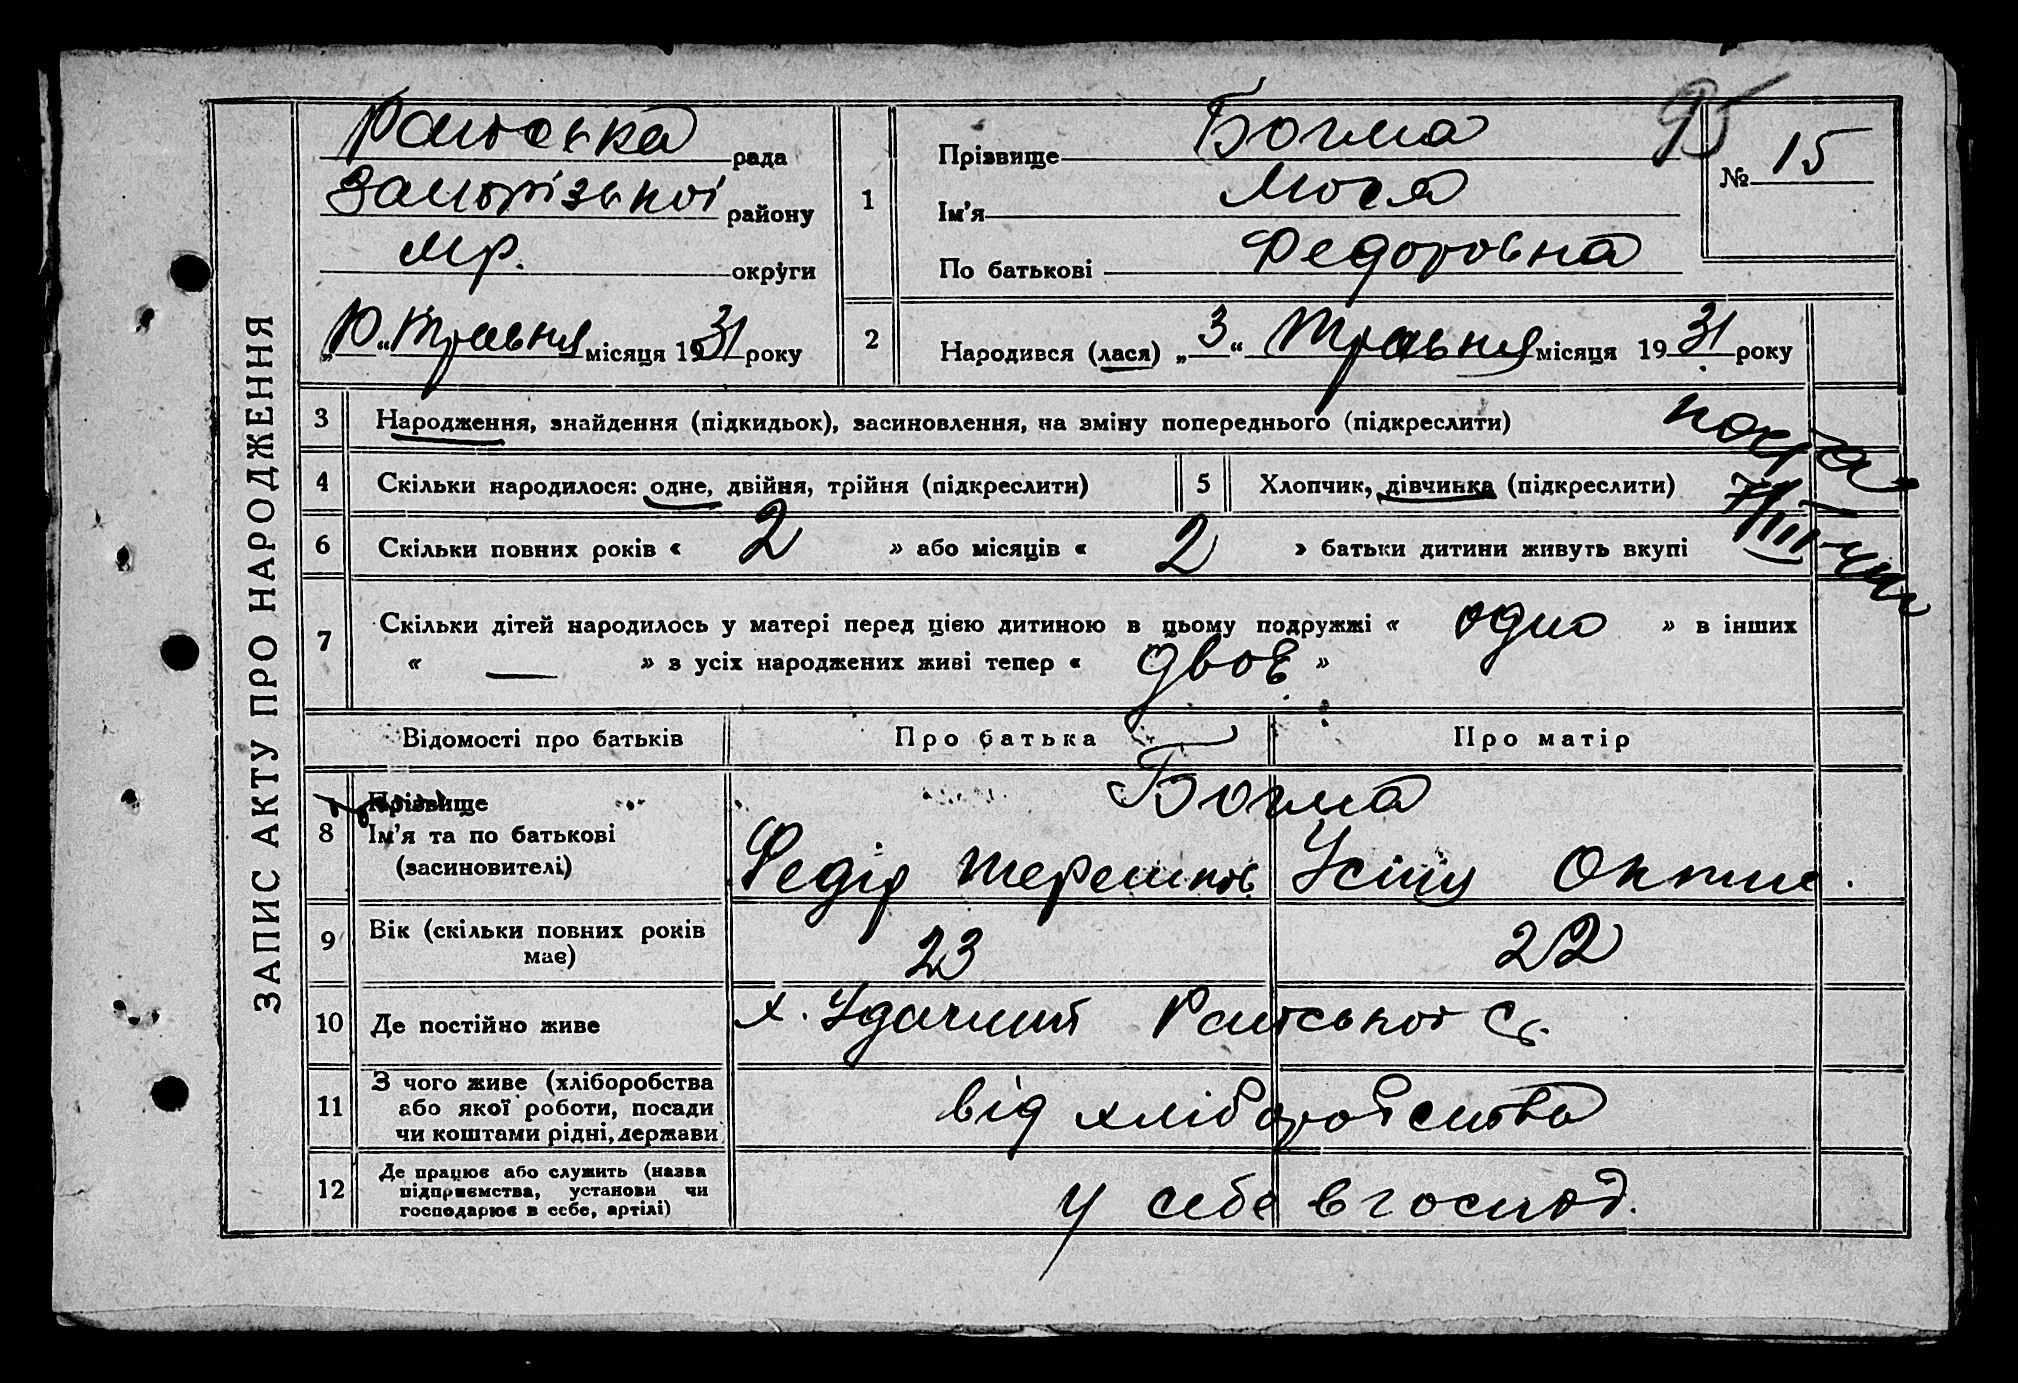 95
Раївська рада
Запорізької району
мр. округи
„10“ травня місяця 1931 року
1
Прізвище Богма
Ім'я Мося
По батькові Федоровна
№ 15
2
Народився (лася) „3“ травня місяця 1931 року
ЗАПИС АКТУ ПРО НАРОДЖЕННЯ
3 Народження, знайдення (підкидьок), засиновлення, на зміну попереднього (підкреслити)
4 Скільки народилося: одне, двійня, трійня (підкреслити)
5 Хлопчик, дівчинка (підкреслити)
6 Скільки повних років « 2 » або місяців « 2 » батьки дитини живуть вкупі
7 Скільки дітей народилось у матері перед цією дитиною в цьому подружжі « одно » в інших
« — » з усіх народжених живі тепер « двоє »
Відомості про батьків
Про батька
Про матір
8 Прізвище
Ім'я та по батькові
(засиновителі)
Богма
Федір Терешков
9 Вік (скільки повних років
має)
23
22
10 Де постійно живе
х. Удачний Раївської с.
11 З чого живе (хліборобства
або якої роботи, посади
чи коштами рідні, держави
від хліборобства
12 Де працює або служить (назва
підприємства, установи чи
господарює в себе, артілі)
у себе в господ.